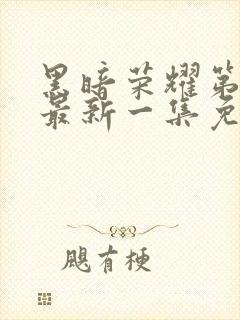 黑暗荣耀第
最新一集免
飓有梗